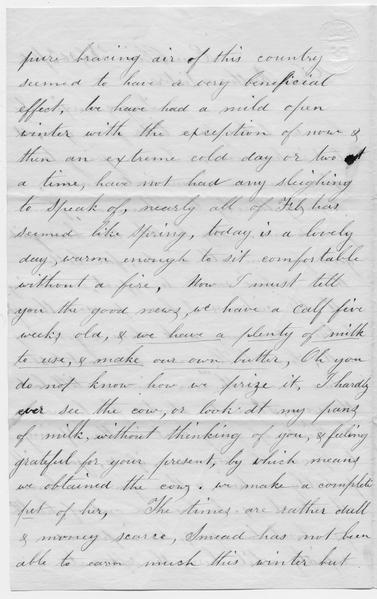 pure bracing air of this country
seemed to have a very beneficial
effect, We have had a mild open
winter with the exception of now &
then an extreme cold day or two at
a time, have not had any sleighing
to speak of, nearly all of Feb, has
seemed like Spring, today is a lovely
day, warm enough to sit comfortable
without a fire, Now I must tell
you the good news, we have a calf five
weeks old, & we have a plenty of milk
to use, & make our own butter, Oh you
do not know how we prize it, I hardly
ever see the cow, or look at my pans
of milk, without thinking of you, & feeling
grateful for your present, by which means
we obtained the cow, we make a complete
pet of her, The times are rather dull
& money scarce, Smead has not been
able to earn much this winter but